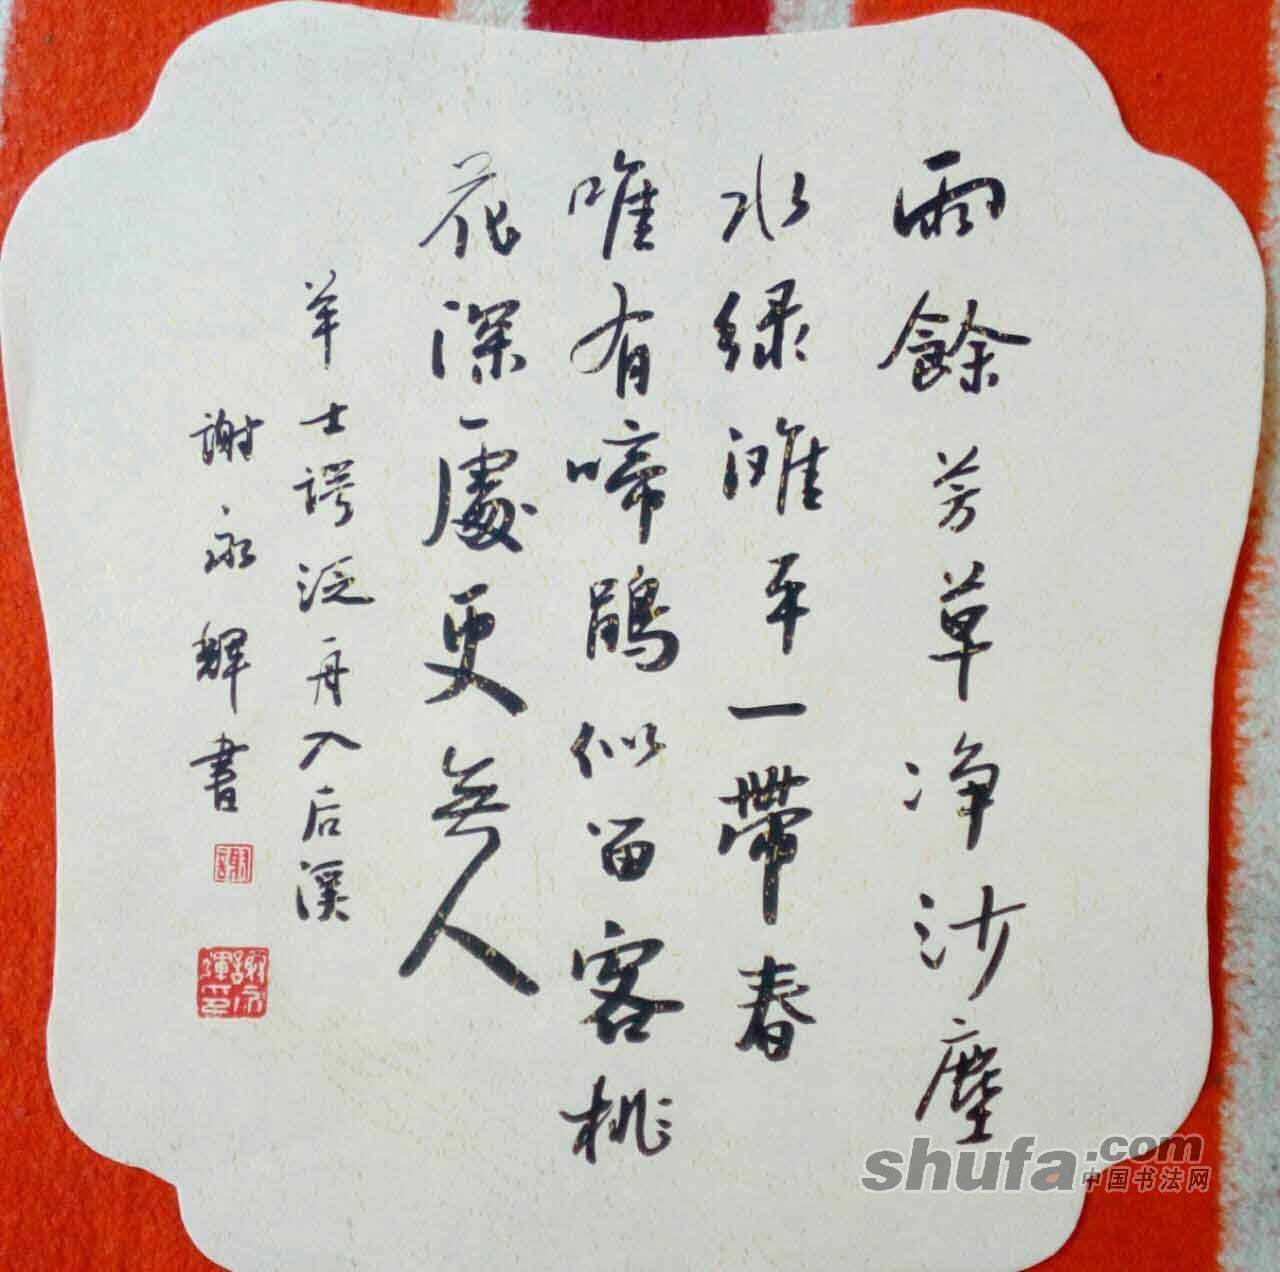 雨餘芳草净沙塵
水绿滩平一帶春
唯有啼鵑似留客桃
花深處更無人
羊士諤泛舟入后溪
謝永輝書
謝
謝永輝印
shufa.com
中国书法网